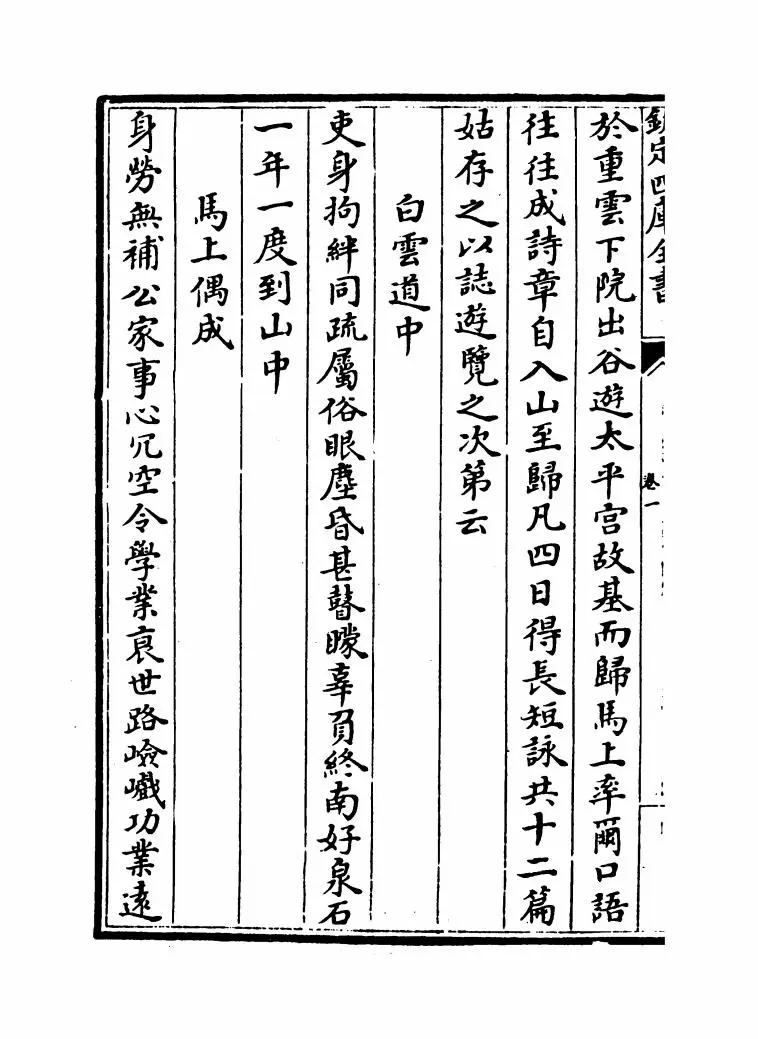 欽定四庫全書
卷一
於重雲下院出谷遊太平宫故基而歸馬上率爾口語
往往成詩章自入山至歸凡四日得長短詠共十二篇
姑存之以誌遊覽之次第云
白雲道中
吏身拘絆同疏屬俗眼塵昏甚瞽矇辜負終南好泉石
一年一度到山中
馬上偶成
身勞無補公家事心冗空令學業衰世路嶮巇功業逺